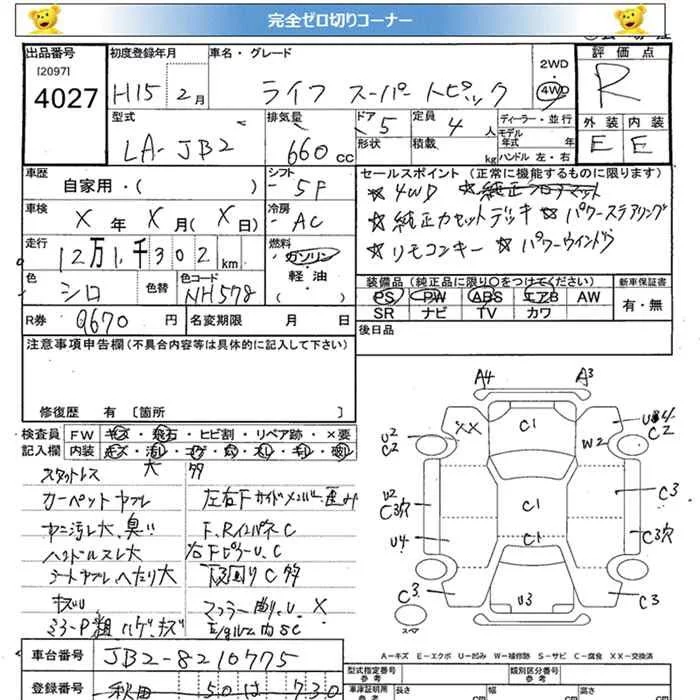 完全ゼロ切りコーナー
出品番号 初度登録年月 車名・グレード 評価点
[2097] H15 2月 ライフ スーパートピック 2WD・4WD R
4027
型式 排気量 ドア 定員 ディーラー・並行 外装 内装
LA-JB2 660cc 5 4人 モデル年式 年 E E
形状 積載 kg ハンドル 左・右
車歴 シフト セールスポイント (正常に機能するものに限ります)
自家用・( ) 5F ☆4WD ☆純正フロアマット
車検 冷房 ☆純正カセットデッキ ☆パワーステアリング
X年 X月(X日) AC ☆リモコンキー ☆パワーウインドウ
走行 燃料
12万1千302km ガソリン
軽・油
( )
色 色替 色コード 装備品 (純正品に限り○をつけてください) 新車保証書
シロ NH578 PS PW ABS エアB AW 有・無
SR ナビ TV カワ
R券 9670円 名変期限 月 日 後日品
注意事項申告欄(不具合内容等は具体的に記入して下さい)
修復歴 有 〔箇所 〕
検査員 FW キズ・飛石・ヒビ割・リペア跡・×要
記入欄 内装
スタットレス 大 多
カーペットヤブレ 左右Fサイドメンバー歪み
ヤニ汚レ大、臭い F、Rインパネ C
ハンドルスレ大 右FピラーU、C
シートヤブレ、ヘタリ大 下回りC多
キズU マフラー曲り、U、X
ミラー
A4 A3
C1
XX
U2
C2
W2
C2
U2
C3穴
C1
C3
U4
C1
C3穴
C3
U3
C3
スペア
A-キズ E-エクボ U-凹み W-補修跡 S-サビ C-腐食 XX-交換済
車台番号 JB2-8210775
型式指定番号 類別区分番号
参考 参考
登録番号 秋田 50 は 730
車庫証明用 参考 長さ 幅 高さ